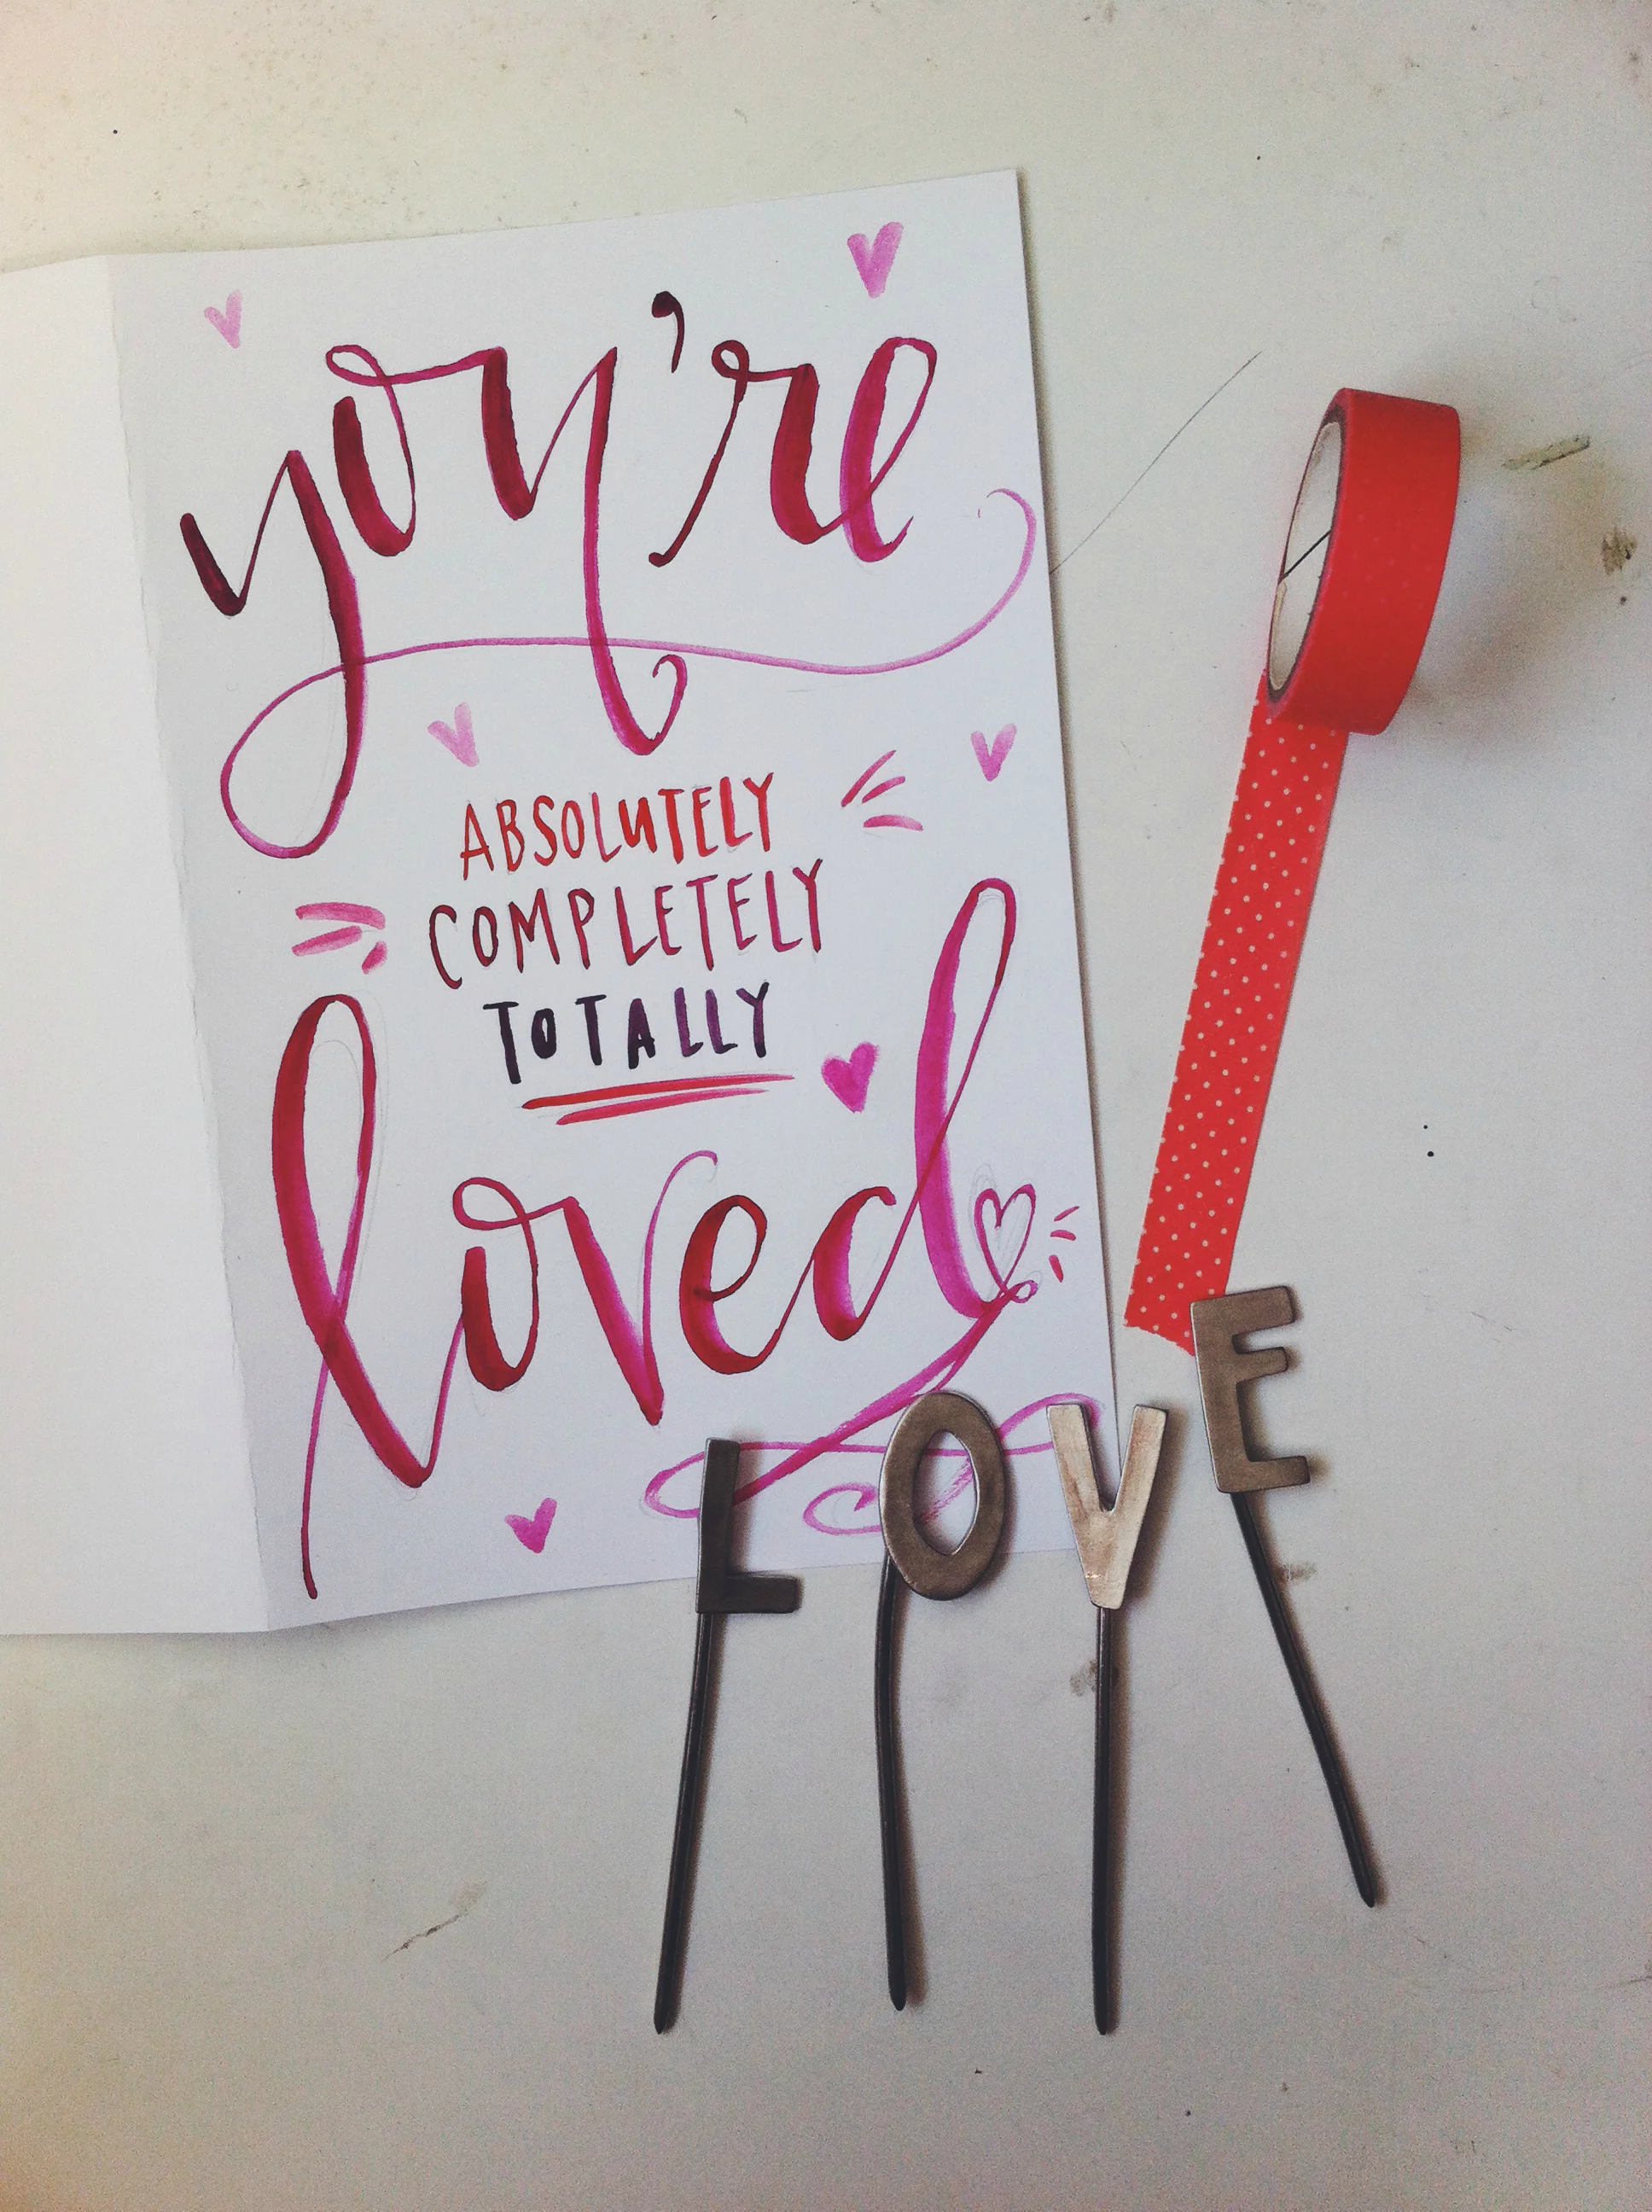 you're
ABSOLUTELY
COMPLETELY
TOTALLY
loved
LOVE